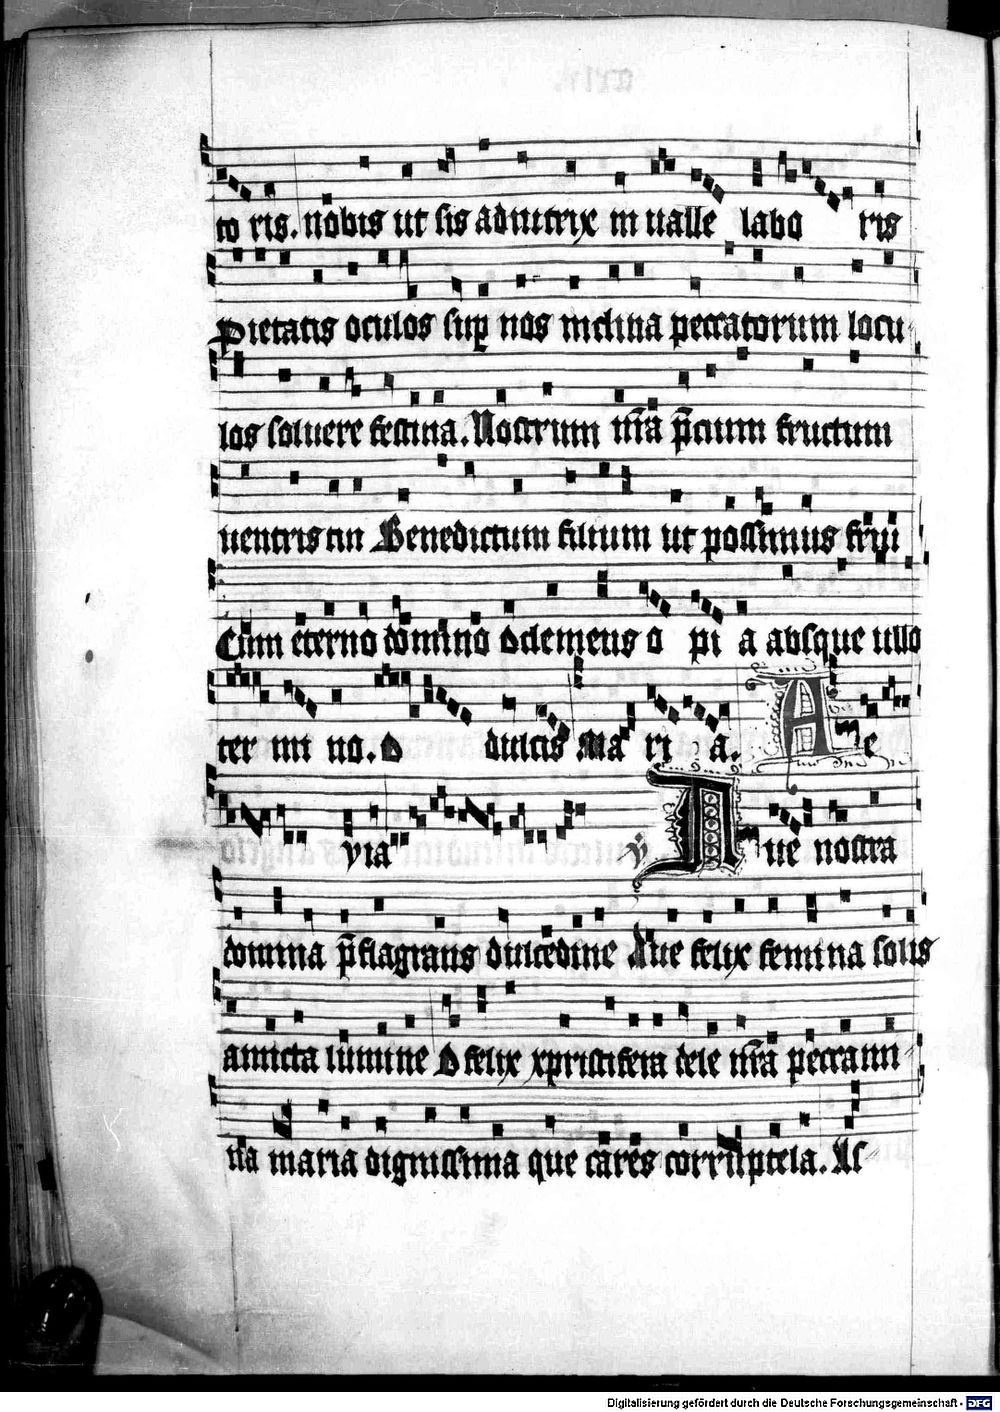 to ris. nobis ut sis adiutrix in ualle labo ris
Pietatis oculos sup nos inclina peccatorum locu
los soluere festina. Nostrum m̄ra p̄cium fructum
uentris tui Benedictum filium ut possimus frui
Cum eterno domino o clemens o pi a absque ullo
ter mi no. O dulcis Ma ri a. A e
yia ṽ Aue nostra
domina p̄flagrans dulcedine Aue felix femina solis
amicta lumine O felix xpristifera dele n̄ra peccami
na maria dignissima que cares corruptela. Al
Digitalisierung gefördert durch die Deutsche Forschungsgemeinschaft - DFG